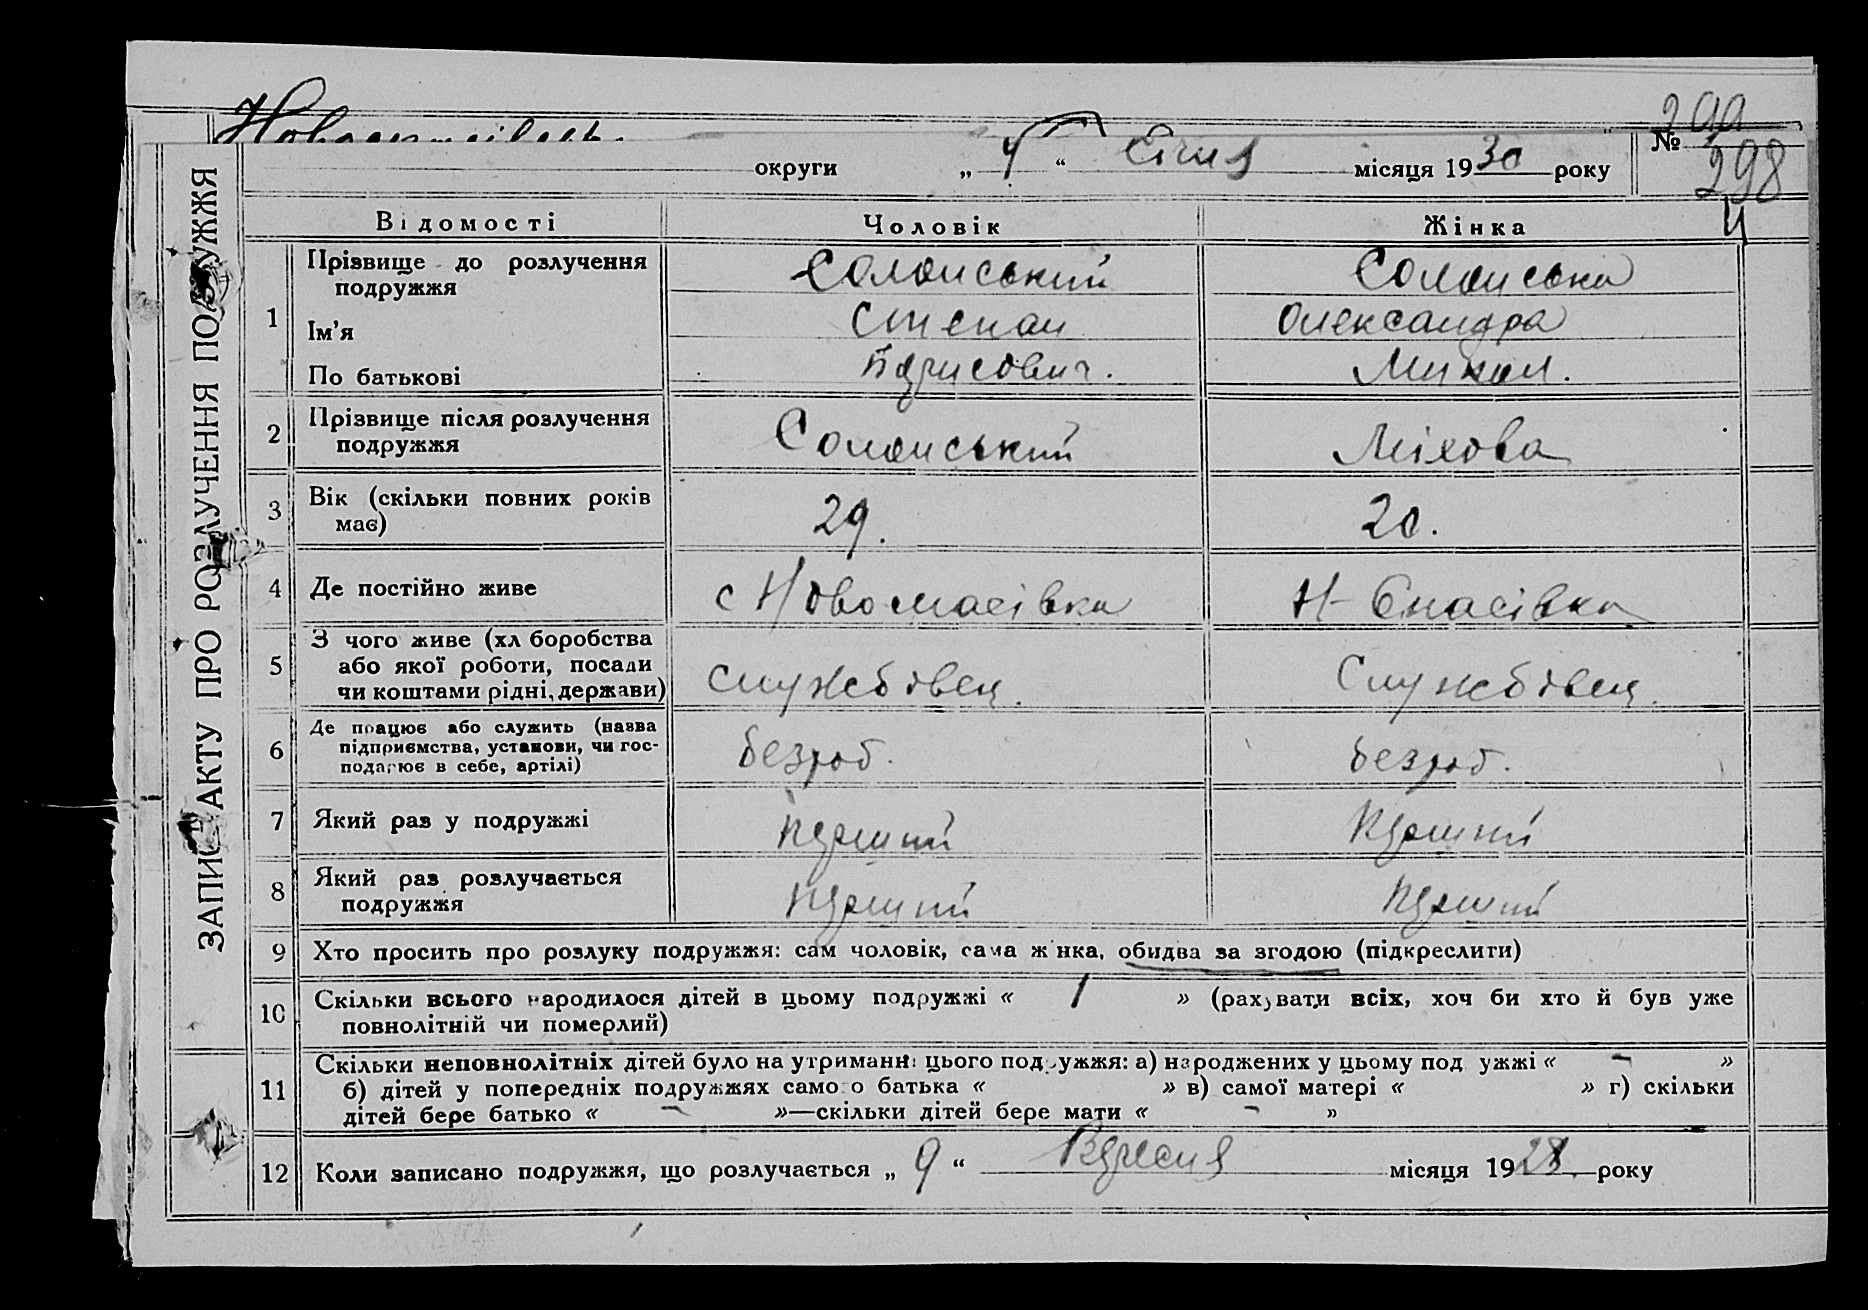 299
№ 298
округи „ 4 “ Січня місяця 1930 року
ЗАПИС АКТУ ПРО РОЗЛУЧЕННЯ ПОДРУЖЖЯ
Відомості Чоловік Жінка
1 Прізвище до розлучення подружжя Солонський Солонська
Ім’я Степан Олександра
По батькові Борисович. Микол.
2 Прізвище після розлучення подружжя Солонський Міхова
3 Вік (скільки повних років має) 29. 20.
4 Де постійно живе с Н-
5 З чого живе (хл боробства або якої роботи, посади чи коштами рідні, держави) службовец. Службовец.
6 Де працює або служить (назва підприємства, установи, чи господарює в себе, артілі) безроб. безроб.
7 Який раз у подружжі Перший Перший
8 Який раз розлучається подружжя Перший Перший
9 Хто просить про розлуку подружжя: сам чоловік, сама жінка, обидва за згодою (підкреслити)
10 Скільки всього народилося дітей в цьому подружжі « 1 » (рахувати всіх, хоч би хто й був уже
повнолітній чи померлий)
11 Скільки неповнолітніх дітей було на утриманні цього подружжя: а) народжених у цьому подружжі « – »
б) дітей у попередніх подружжях самого батька « » в) самої матері « » г) скільки
дітей бере батько « – »—скільки дітей бере мати « – »
12 Коли записано подружжя, що розлучається „ 9 “ Вересня місяця 1928. року